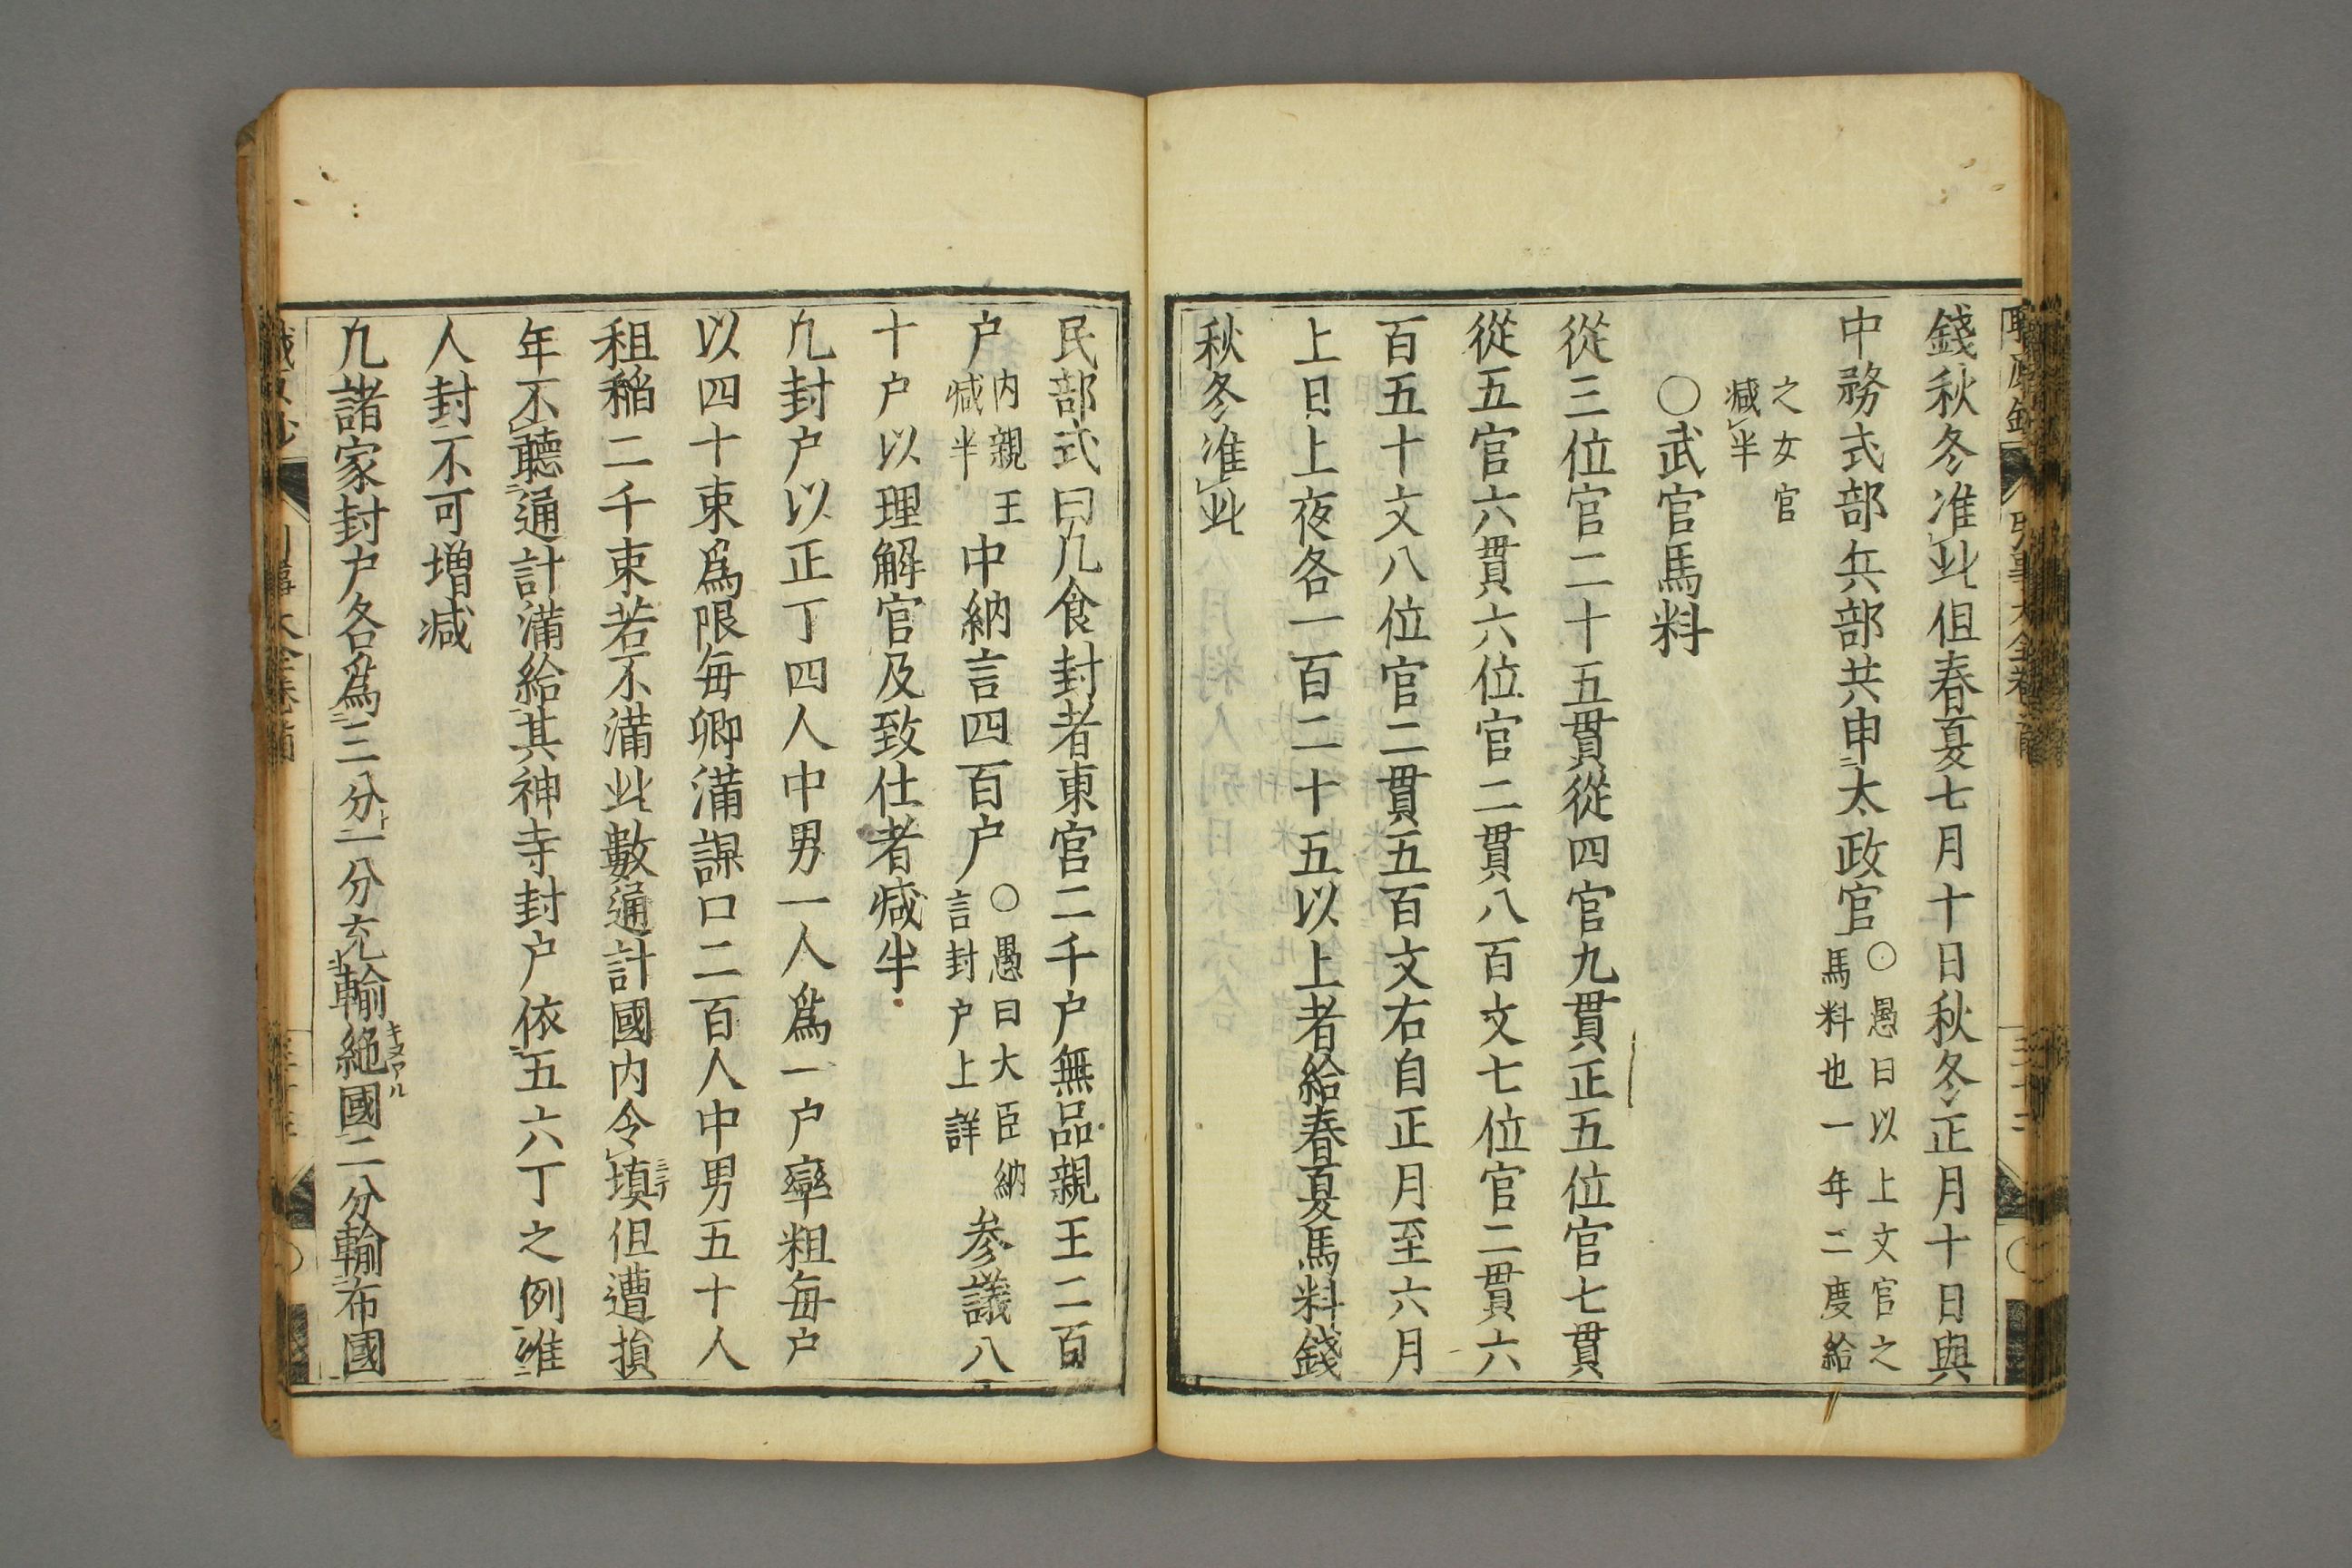 錢秋冬准此但春夏七月十日秋冬正月十日與
中務式部兵部共申太政官
○愚曰以上文官之
馬料也一年二度給
之女官
减半
○武官馬料
從三位官二十五貫從四官九貫正五位官七貫
從五官六貫六位官二貫八百文七位官二貫六
百五十文八位官二貫五百文右自正月至六月
上日上夜各一百二十五以上者給春夏馬料錢
秋冬准此
民部式曰凢食封者東宮二千户無品親王二百
户
内親王
减半
中納言四百户
○愚曰大臣納
言封户上詳
参議八
十户以理解官及致仕者减半
凢封户以正丁四人中男一人爲一户率粗毎户
以四十束爲限毎卿満課口二百人中男五十人
租稲二千束若不満此數通計國内令填但遭損
年不聽通計満給其神寺封户依五六丁之例准
人封不可増减
凢諸家封户各爲三分一分充輸絶國二分輸布國